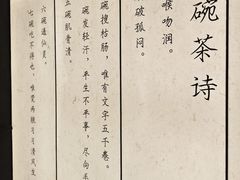 碗茶诗
喉吻润。
破孤闷。
碗搜枯肠，唯有文字五千卷。
碗发轻汗，平生不平事，尽向
五碗肌骨清。
六碗通仙灵。
七碗吃不得也，唯觉两腋习习清风生